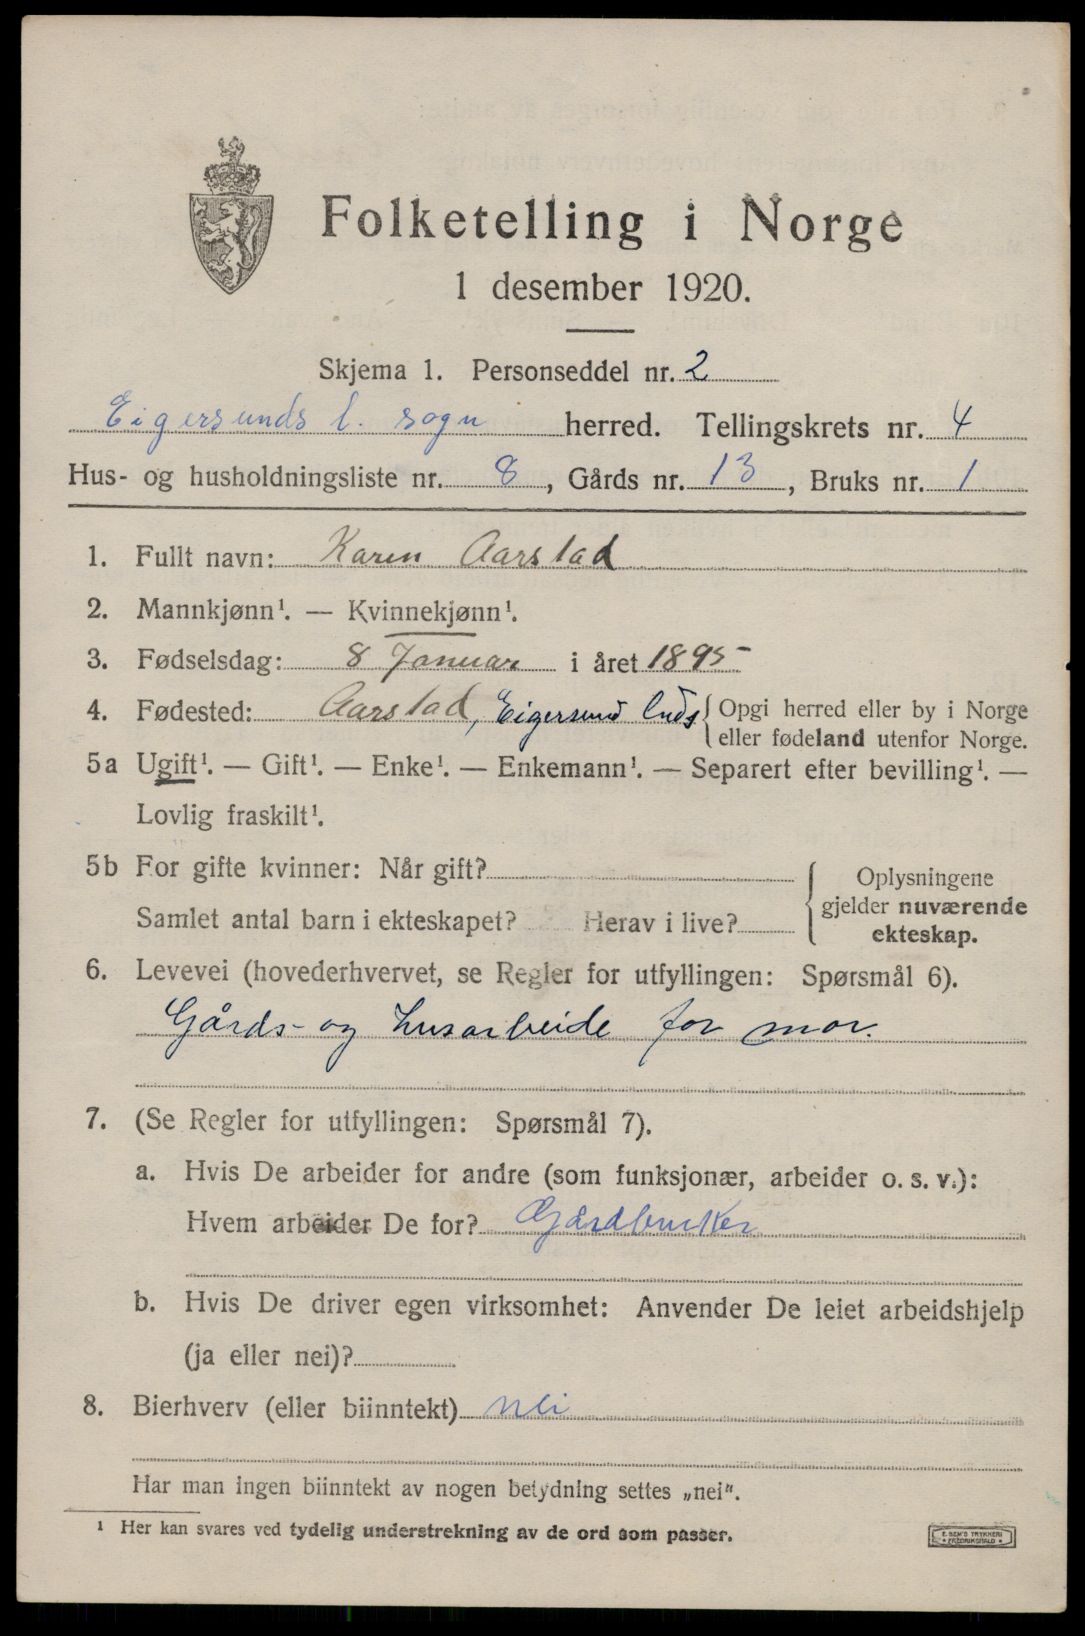 Folketelling i Norge
1 desember 1920.
Skjema 1. Personseddel nr. 2
Eigersunds l. sogn herred. Tellingskrets nr. 4
Hus- og husholdningsliste nr. 8, Gårds nr. 13, Bruks nr. 1
1. Fullt navn: Karen Aarstad
2. Mannkjønn¹. — Kvinnekjønn¹.
3. Fødselsdag: 8 Januar i året 1895
4. Fødested: Aarstad, Eigersund lnds { Opgi herred eller by i Norge
eller fødeland utenfor Norge.
5a Ugift¹. — Gift¹. — Enke¹. — Enkemann¹. — Separert efter bevilling¹. —
Lovlig fraskilt¹.
5b For gifte kvinner: Når gift?
Samlet antal barn i ekteskapet? Herav i live?
Oplysningene
gjelder nuværende
ekteskap.
6. Levevei (hovederhvervet, se Regler for utfyllingen: Spørsmål 6).
Gårds- og husarbeide for mor.
7. (Se Regler for utfyllingen: Spørsmål 7).
a. Hvis De arbeider for andre (som funksjonær, arbeider o. s. v.):
Hvem arbeider De for? Gårdbruker
b. Hvis De driver egen virksomhet: Anvender De leiet arbeidshjelp
(ja eller nei)?
8. Bierhverv (eller biinntekt) nei
Har man ingen biinntekt av nogen betydning settes „nei".
¹ Her kan svares ved tydelig understrekning av de ord som passer.
E. SEM'S TRYKKERI
FREDRIKSHALD